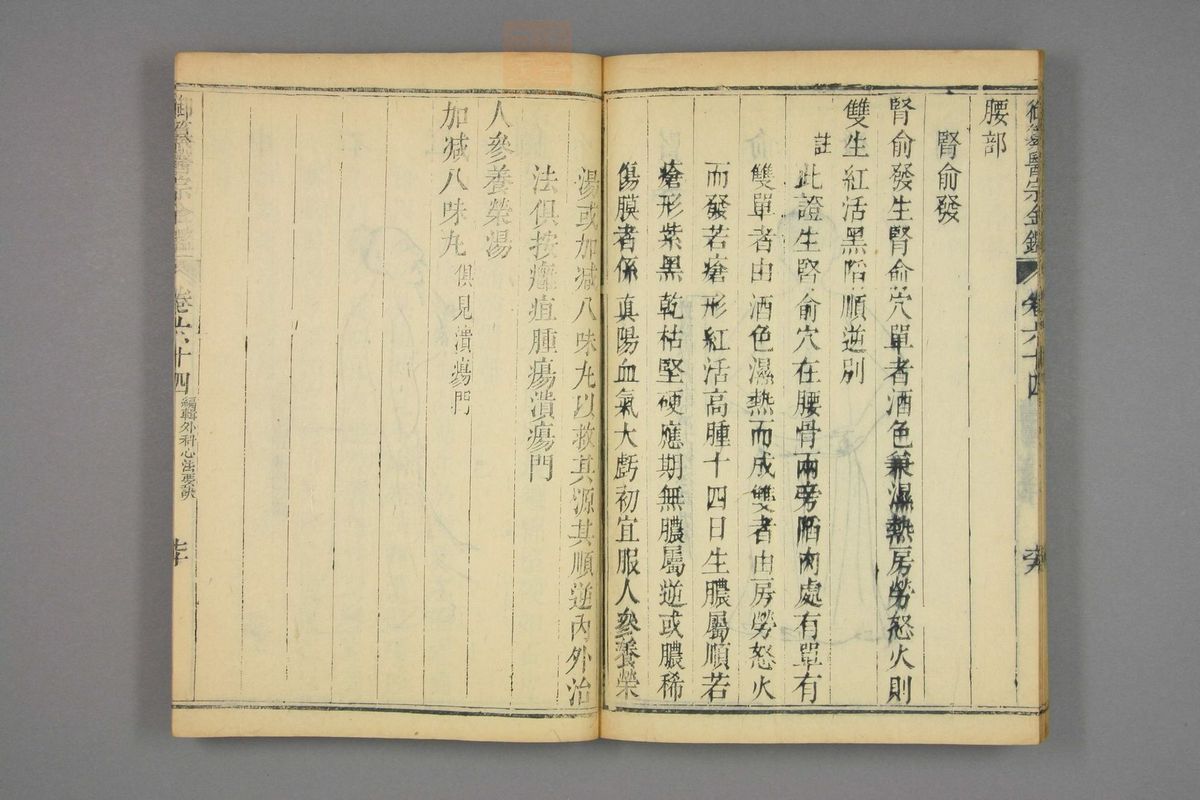 御纂醫宗金鑑 卷六十四
腰部
腎俞發
腎俞發生腎俞穴單者酒色兼濕熱房勞怒火則
雙生紅活黑陷順逆別
註
此證生腎俞穴在腰骨兩旁陷肉處有單有
雙單者由酒色濕熱而成雙者由房勞怒火
而發若瘡形紅活高腫十四日生膿屬順若
瘡形紫黑乾枯堅硬應期無膿屬逆或膿稀
傷膜者係真陽血氣大虧初宜服人參養榮
湯或加減八味丸以救其源其順逆內外治
法俱按癰疽腫瘍潰瘍門
人參養榮湯
加減八味丸 俱見潰瘍門
御纂醫宗金鑑 卷六十四 編輯外科心法要訣